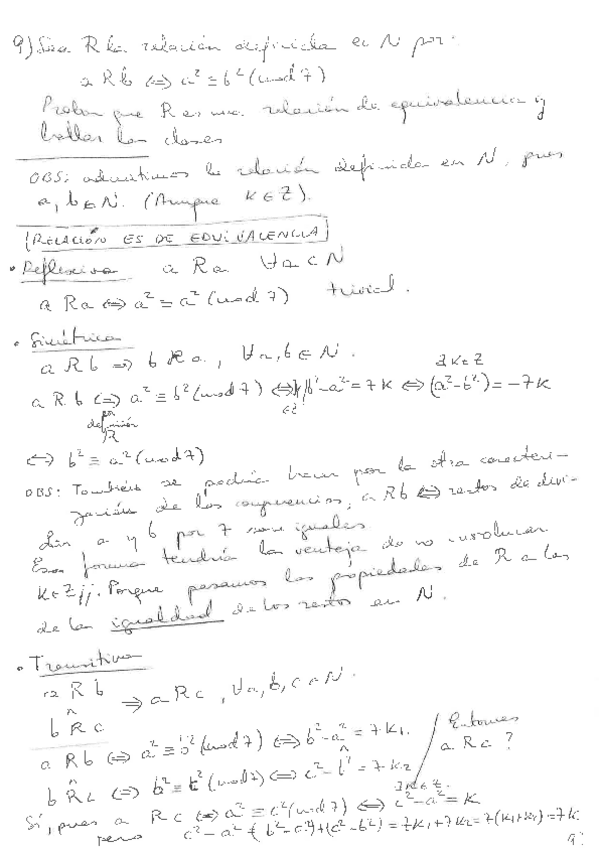 9) Sea R la relación definida en N por:
a R b ⇔ a² ≡ b² (mod 7)
Probar que R es una relación de equivalencia y
hallar las clases
OBS: admitimos la relación definida en N, pues
a, b ∈ N. (Aunque K ∈ Z).
(RELACIÓN ES DE EQUIVALENCIA)
• Reflexiva a Ra ∀a ∈ N
a Ra ⇔ a² ≡ a² (mod 7) trivial.
• Simétrica
a R b ⇒ b R a, ∀a, b ∈ N.
∃ K∈Z
a R b ⇔ a² ≡ b² (mod 7) ⇔ b² - a² = 7K ⇔ (a² - b²) = -7K
por
definición
R
⇔ b² ≡ a² (mod 7)
OBS: También se podría hacer por la otra caracteri-
zación de las congruencias, a Rb ⇔ restos de divi-
dir a y b por 7 son iguales
Esa forma tendría la ventaja de no involucrar
K∈Z ¡¡. Porque pasamos las propiedades de R a las
de la igualdad de los restos en N.
• Transitiva
a R b
∧ ⇒ a R c, ∀a, b, c ∈ N.
b R c
a R b ⇔ a² ≡ b² (mod 7) ⇔ b² - a² = 7K₁. Entonces
∧ ∧ a R c ?
b R c ⇔ b² ≡ c² (mod 7) ⇔ c² - b² = 7K₂
∃K∈Z.
Sí, pues a R c ⇔ a² ≡ c² (mod 7) ⇔ c² - a² = K
pero c² - a² = (b² - c²) + (c² - b²) = 7K₁ + 7K₂ = 7(K₁+K₂) = 7K